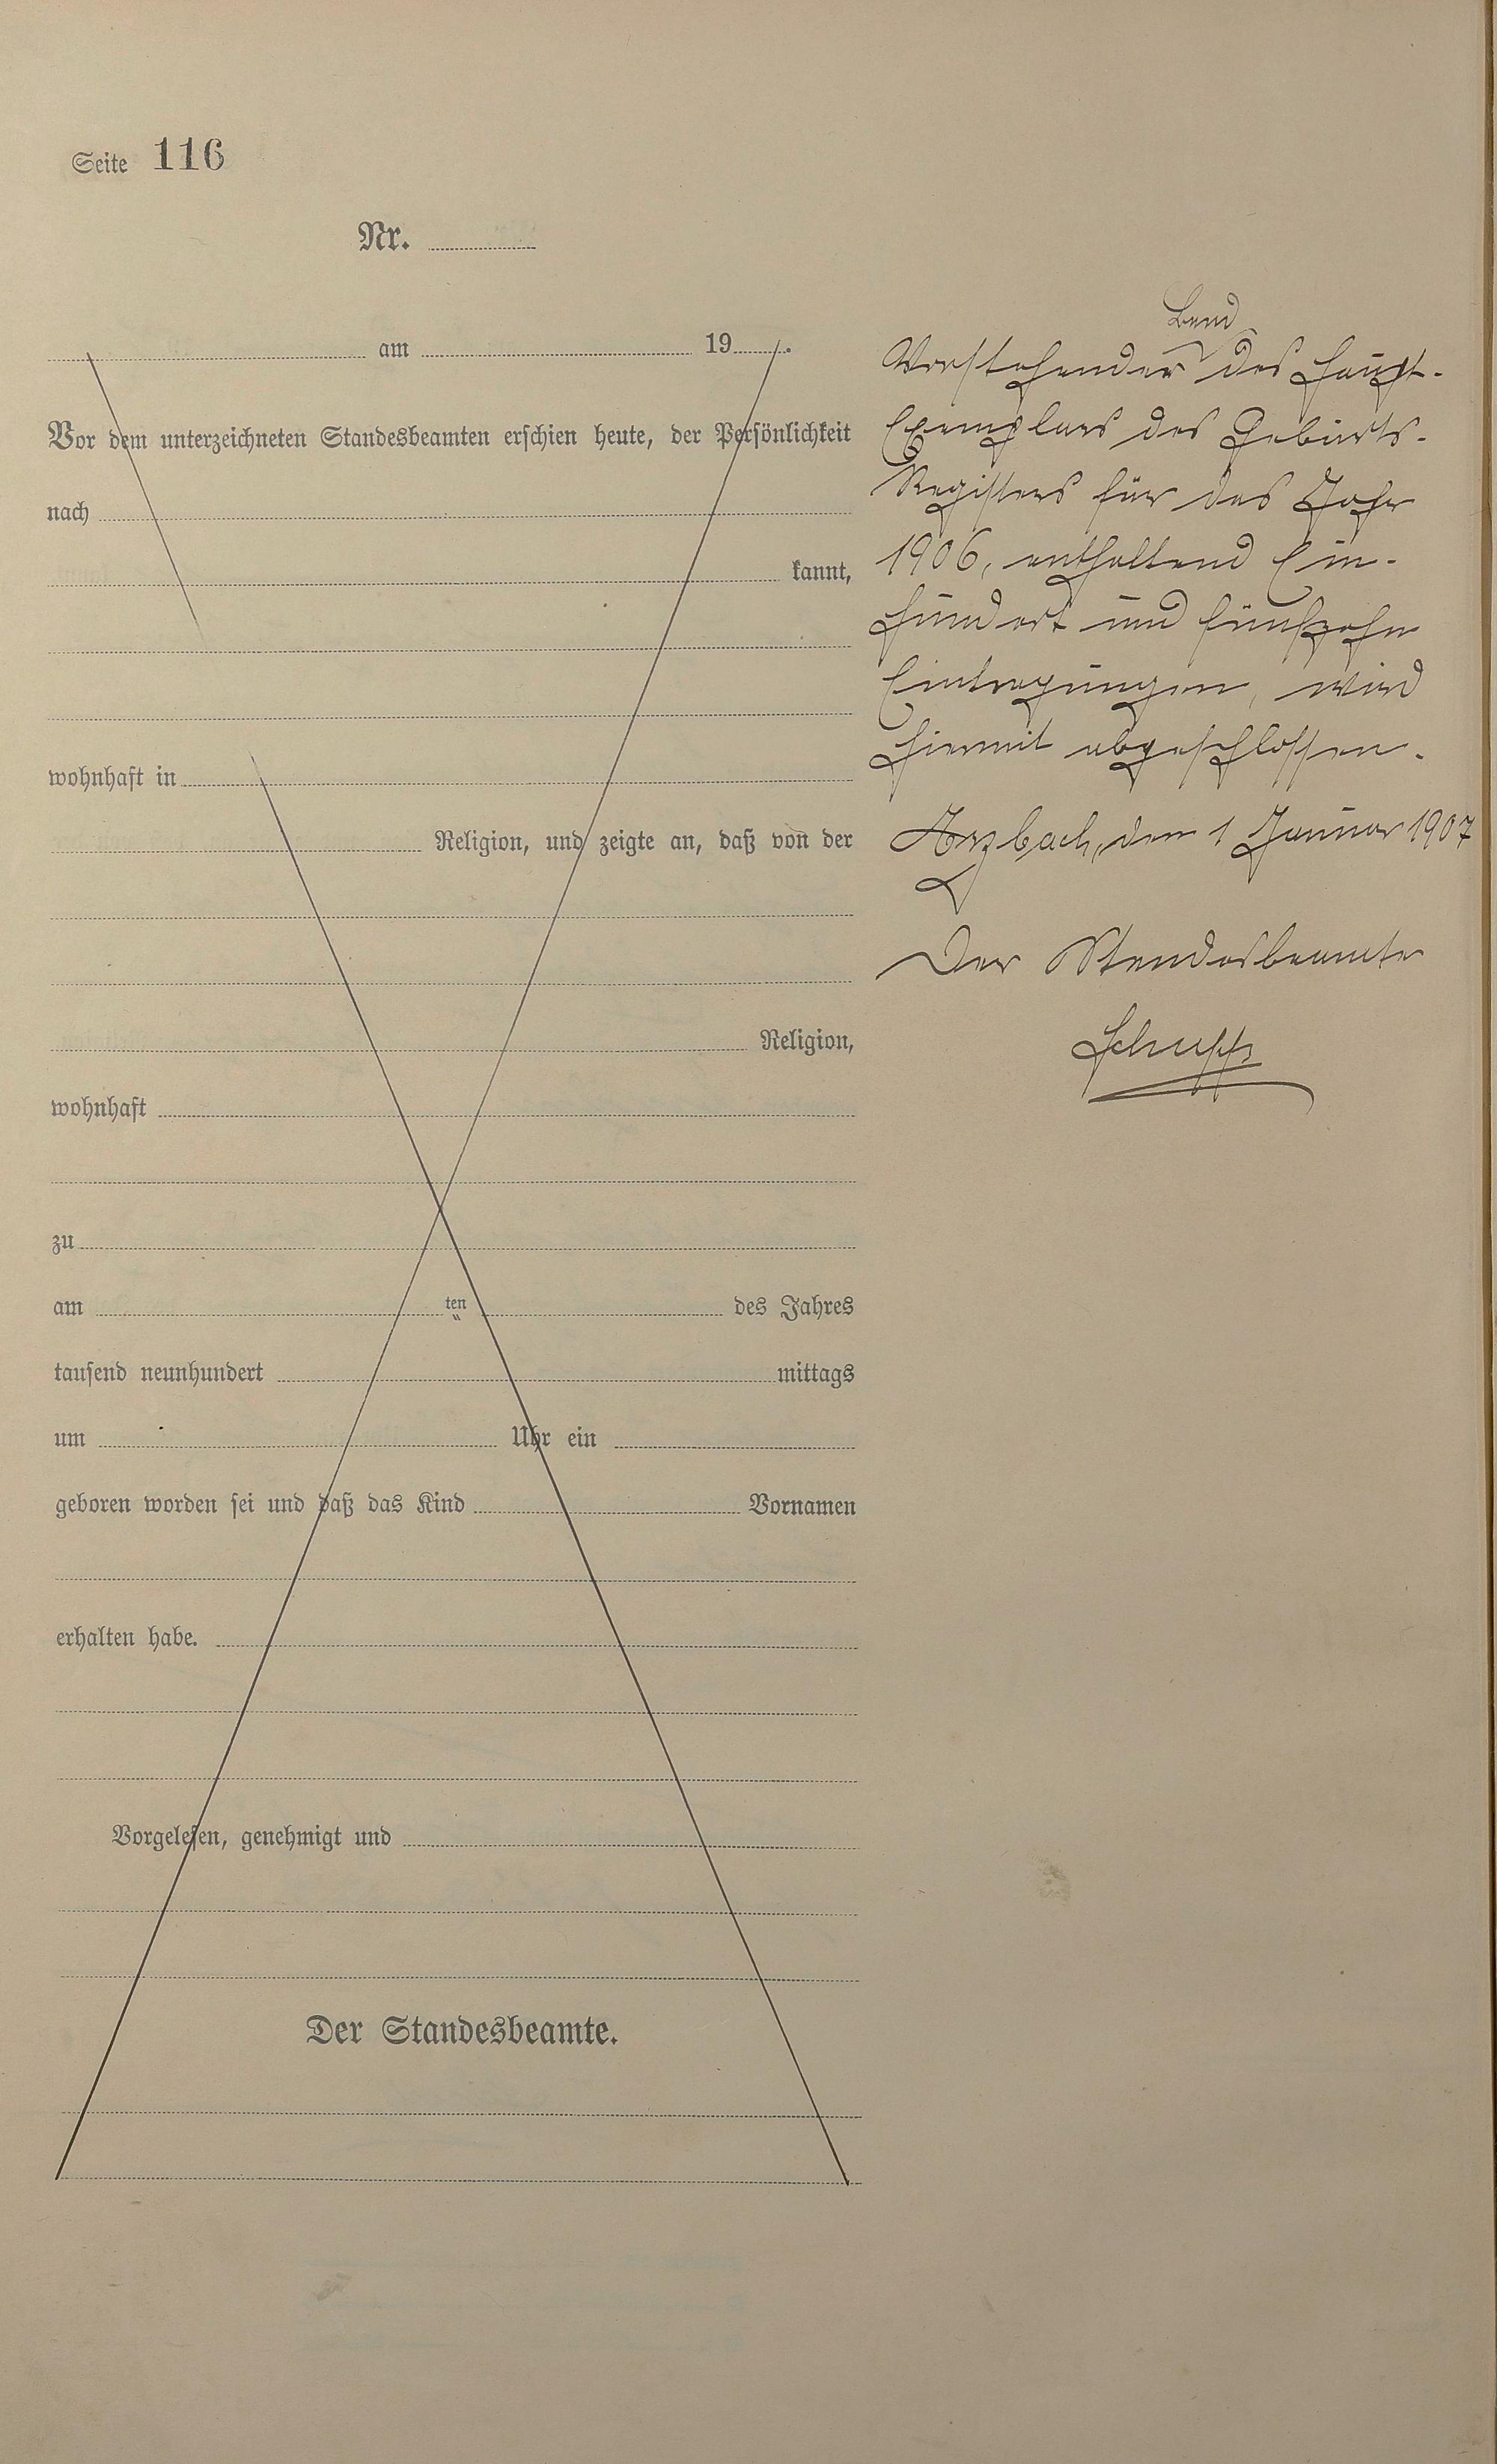 Seite 116
Nr.
am 19 .
Vor dem unterzeichneten Standesbeamten erschien heute, der Persönlichkeit
nach
kannt,
wohnhaft in
Religion, und zeigte an, daß von der
Religion,
wohnhaft
zu
am ten des Jahres
tausend neunhundert mittags
um Uhr ein
geboren worden sei und daß das Kind Vornamen
erhalten habe.
Vorgelesen, genehmigt und
Der Standesbeamte.
Band
Vorstehender des Haupt-
Exemplars des Geburts-
Registers für das Jahr
1906, enthaltend Ein-
hundert und fünfzehn
Eintragungen, wird
hiermit abgeschlossen.
Arzbach, den 1 Januar 1907
Der Standesbeamte
Schupp